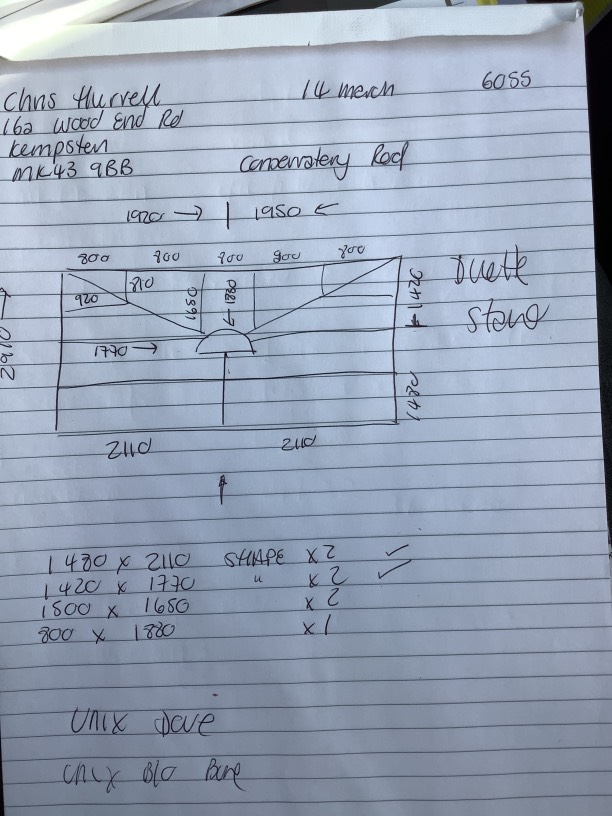 Chris Hurrell 14 march 6055
162 Wood End Rd
Kempsten
MK43 9BB Conservatery Roof
1920 → | 1950 ←
800 800 800 800 800
Duette
920 810 1880 1420
Stand
2910
1770 →
1480
2110 2110
1480 x 2110 SHAPE x 2 ✓
1420 x 1770 " x 2 ✓
1500 x 1650 x 2
800 x 1880 x 1
Unix Dove
Unix B/O